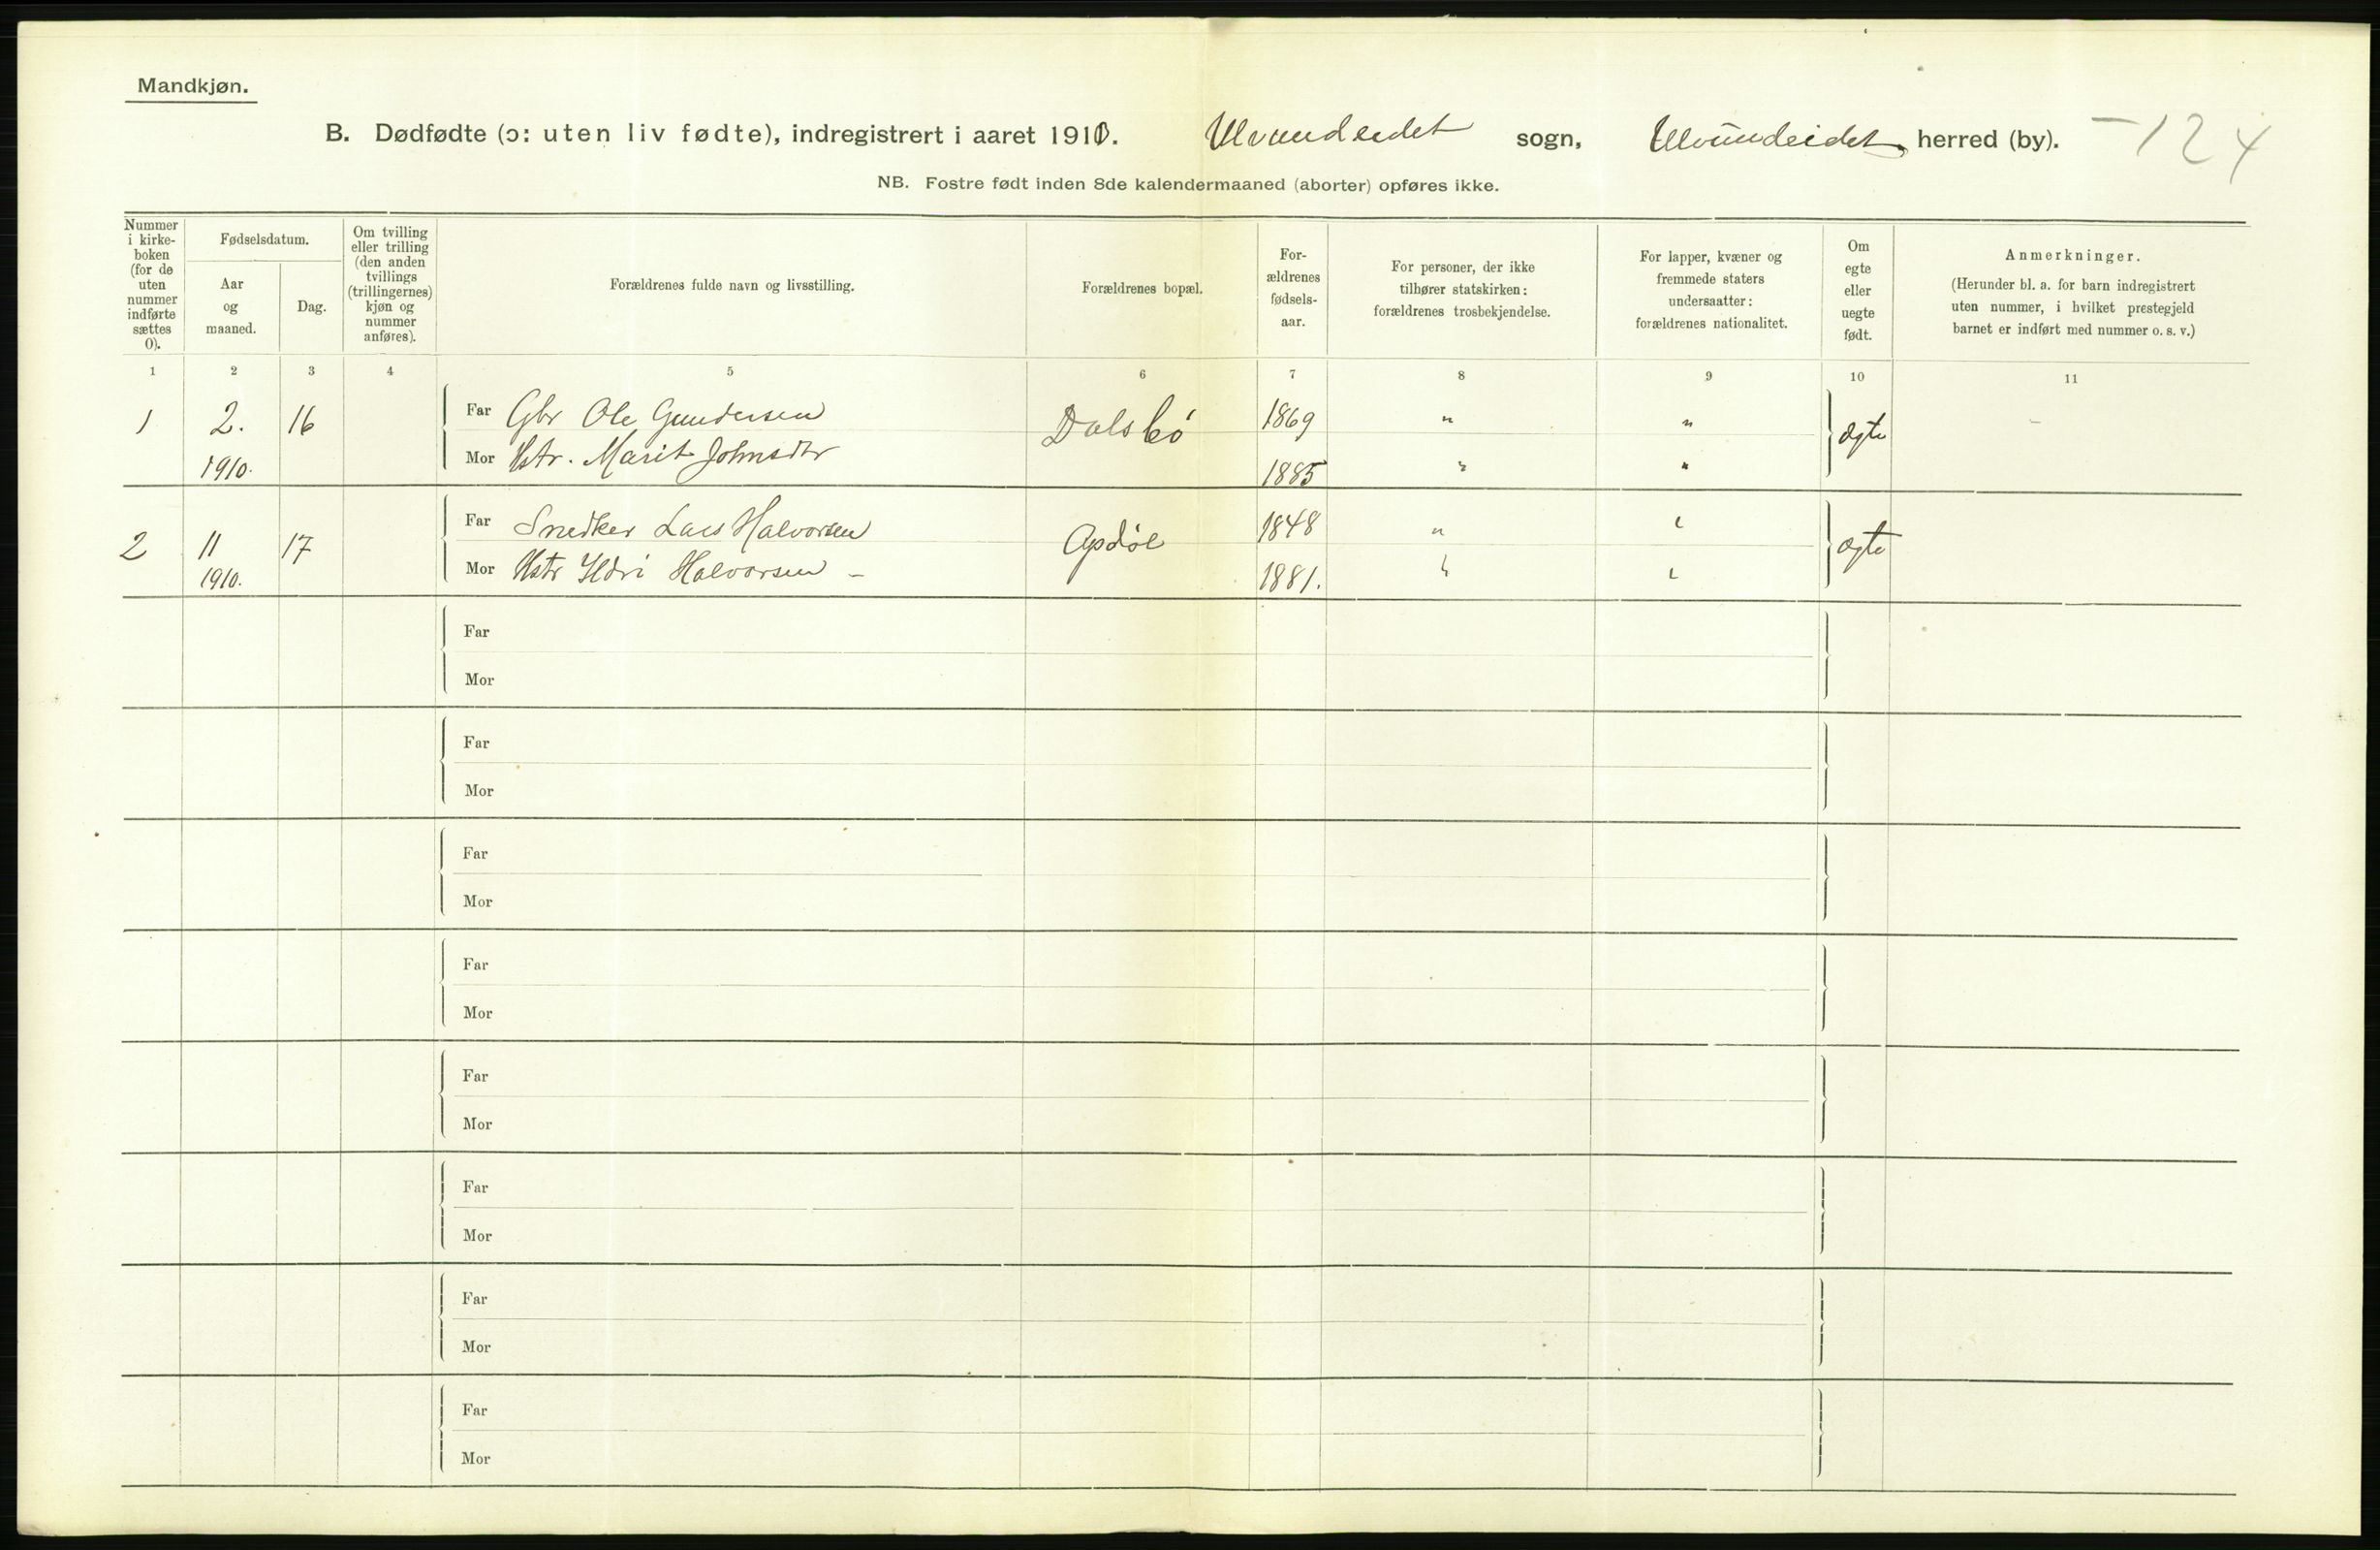 Mandkjøn.
B. Dødfødte (ɔ: uten liv fødte), indregistrert i aaret 1910. Ulvundeidet sogn, Ulvundeidet herred (by). -124
NB. Fostre født inden 8de kalendermaaned (aborter) opføres ikke.
Nummer i kirke-boken (for de uten nummer indførte sættes 0).
Fødselsdatum.
Aar og maaned.
Dag.
Om tvilling eller trilling (den anden tvillings (trillingernes) kjøn og nummer anføres).
Forældrenes fulde navn og livsstilling.
Forældrenes bopæl.
For-ældrenes fødsels-aar.
For personer, der ikke tilhører statskirken: forældrenes trosbekjendelse.
For lapper, kvæner og fremmede staters undersaatter: forældrenes nationalitet.
Om egte eller uegte født.
Anmerkninger.
(Herunder bl. a. for barn indregistrert uten nummer, i hvilket prestegjeld barnet er indført med nummer o. s. v.)
1 2 3 4 5 6 7 8 9 10 11
1 2. 16 Far Gbr Ole Gundersen Dalsbö 1869 " " ægte -
1910. Mor Hstr. Marit Johnsdtr 1885 " "
2 11 17 Far Snedker Lars Halvorsen Opdöl 1848 " " ægte
1910. Mor Hstr Ildri Halvorsen - 1881. " "
Far
Mor
Far
Mor
Far
Mor
Far
Mor
Far
Mor
Far
Mor
Far
Mor
Far
Mor